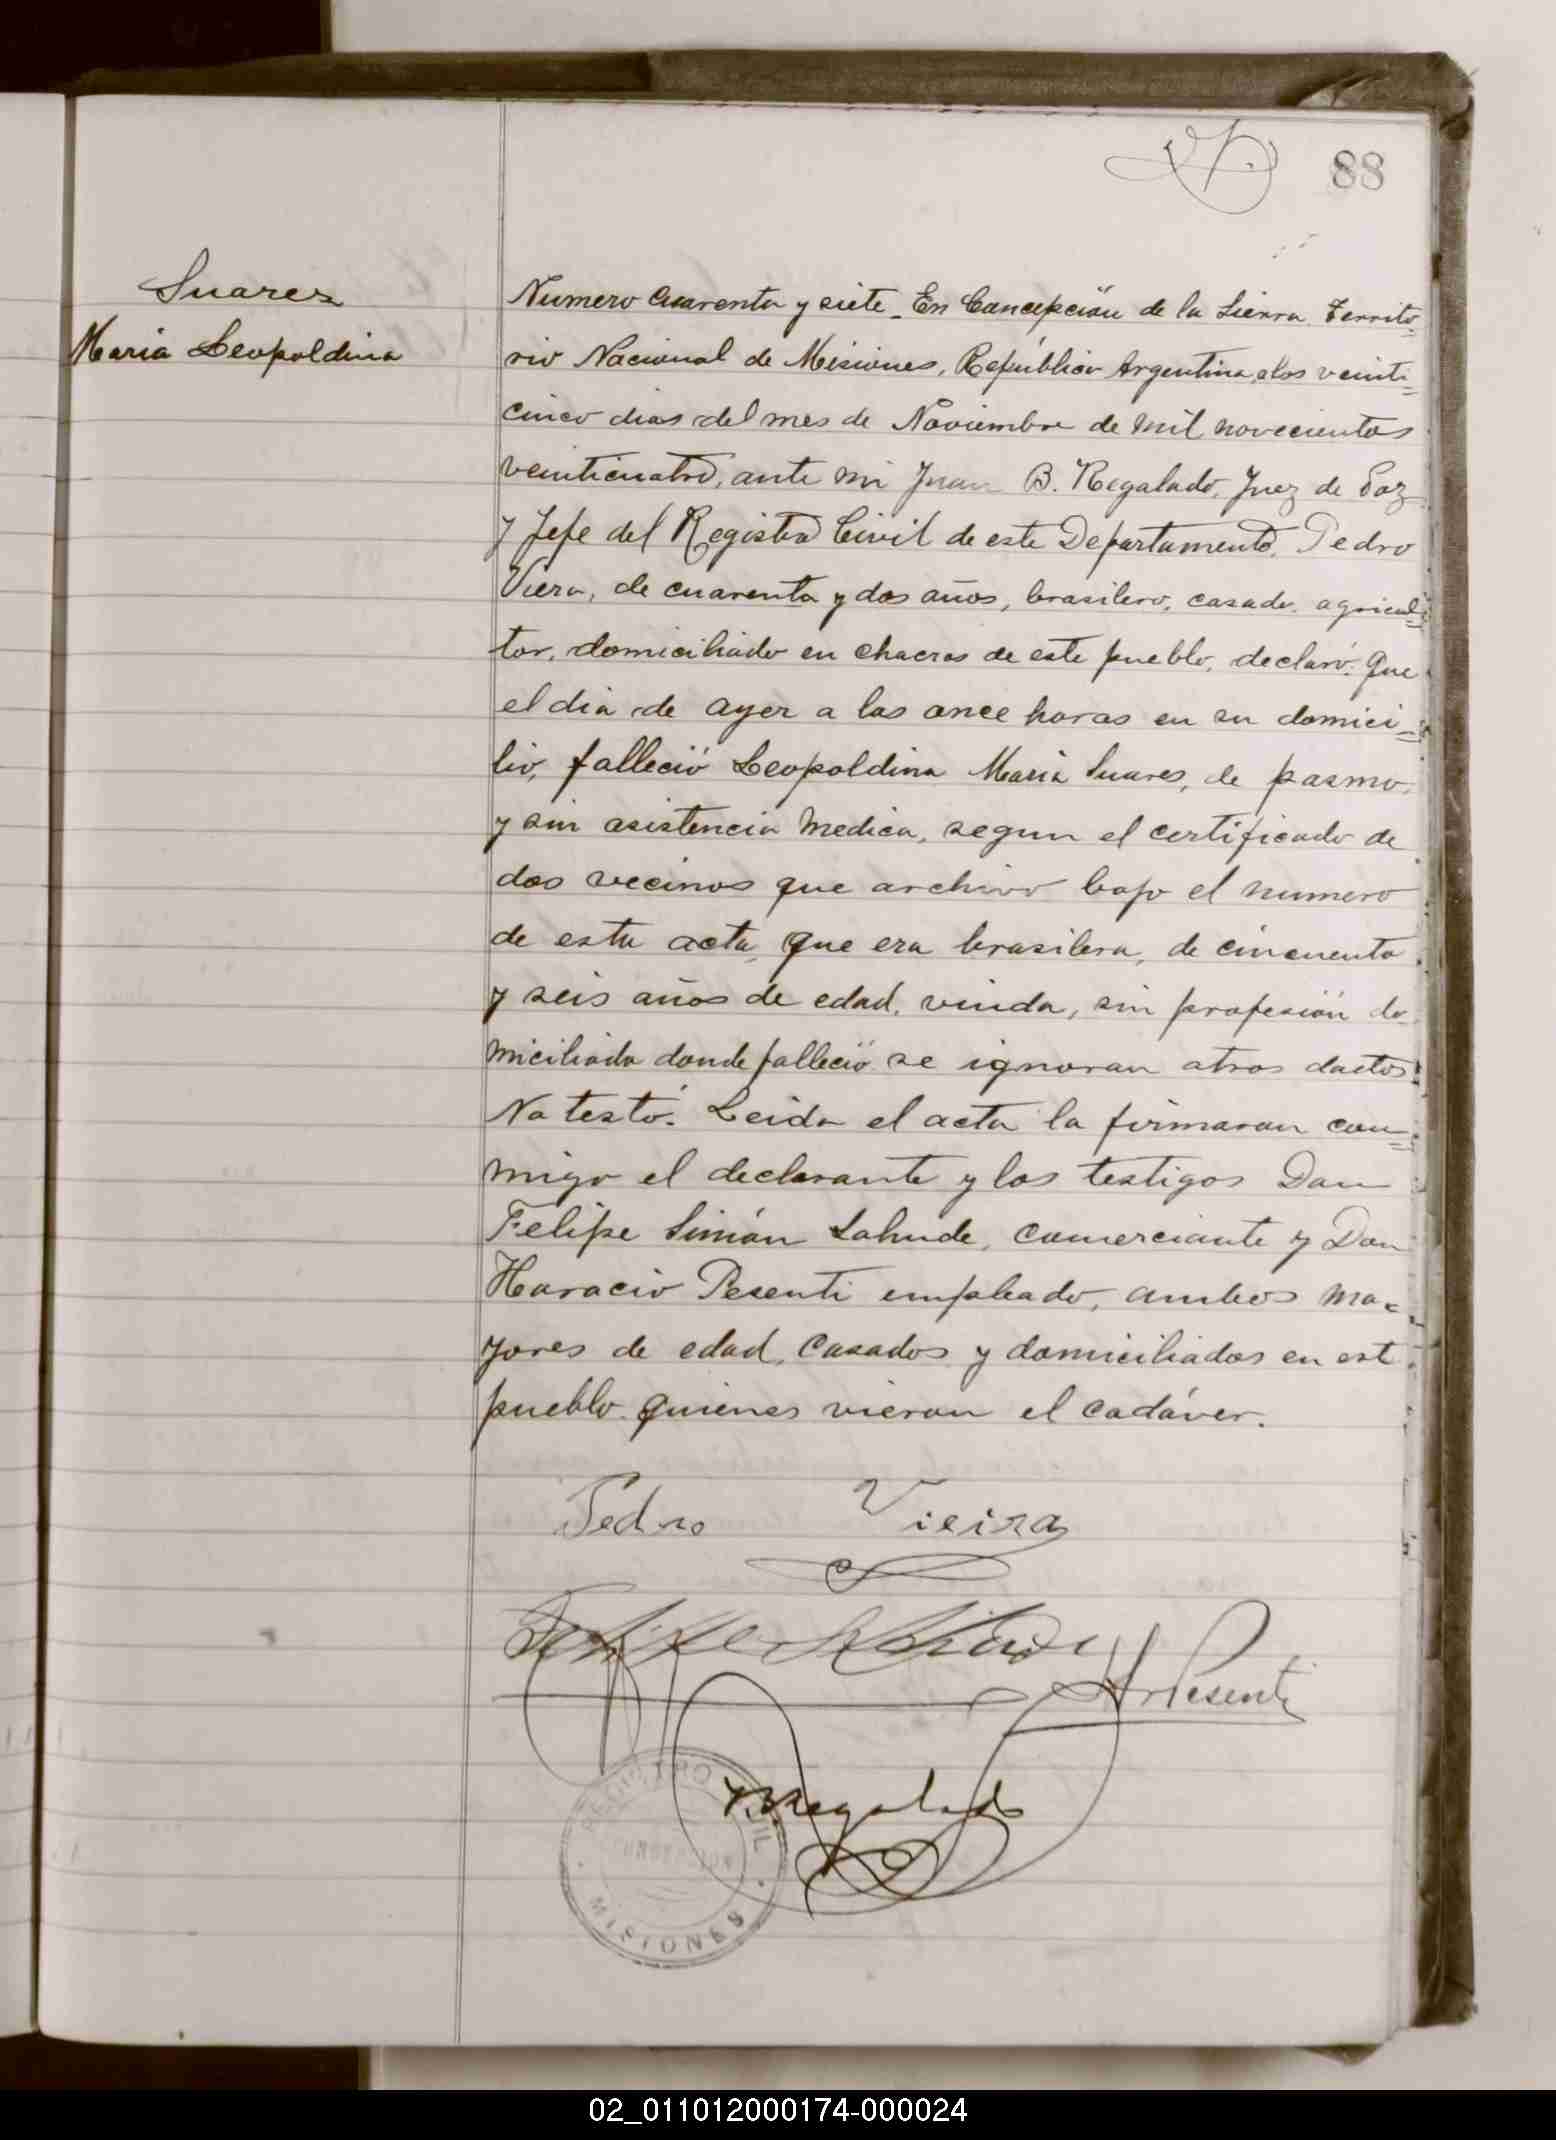 88
Suarez
Maria Leopoldina
Numero cuarenta y siete. En Concepción de la Sierra Territo-
rio Nacional de Misiones, República Argentina, a los veinti-
cinco dias del mes de Noviembre de mil novecientos
veinticuatro, ante mi Juan B. Regalado, Juez de Paz
y Jefe del Registro Civil de este Departamento, Pedro
Viera, de cuarenta y dos años, brasilero, casado, agricul-
tor, domiciliado en chacras de este pueblo, declaró: Que
el dia de ayer a las once horas en su domici-
lio, falleció Leopoldina Maria Suares, de pasmo,
y sin asistencia medica, segun el certificado de
dos vecinos que archivo bajo el numero
de esta acta, que era brasilera, de cincuenta
y seis años de edad, viuda, sin profesión do-
miciliada donde falleció se ignoran otros dactos
No testó. Leida el acta la firmaron con-
migo el declarante y los testigos Don
Felipe Simón Lahude, comerciante y Don
Horacio Pesenti empleado, ambos ma-
yores de edad, casados y domiciliados en est
pueblo quienes vieron el cadáver.
Pedro Vieira
Felipe S Lahude
H Pesenti
JBRegalado
REGISTRO CIVIL
CONCEPCION
MISIONES
02_011012000174-000024